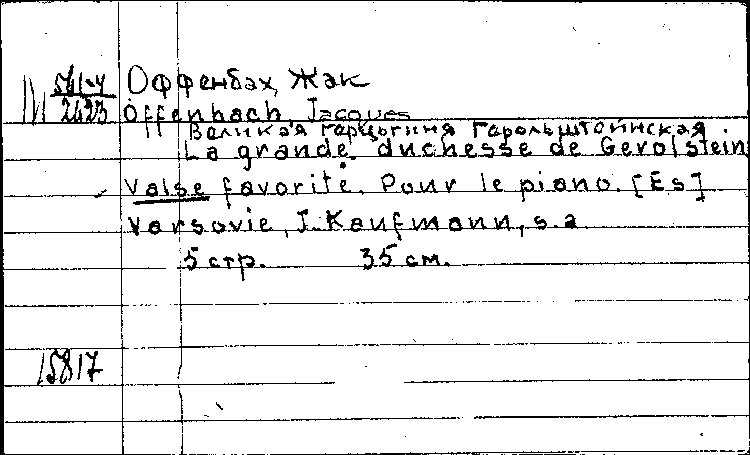 Оффенбах, Жак
М 561-4
2423
Offenbach, Jacques
Великая герцогиня Герольштейнская.
La grande duchesse de Gerolstein
Valse favorite. Pour le piano. [Es]
Varsovie, J. Kaufmann, s.a.
5 стр. 35 см.
15817